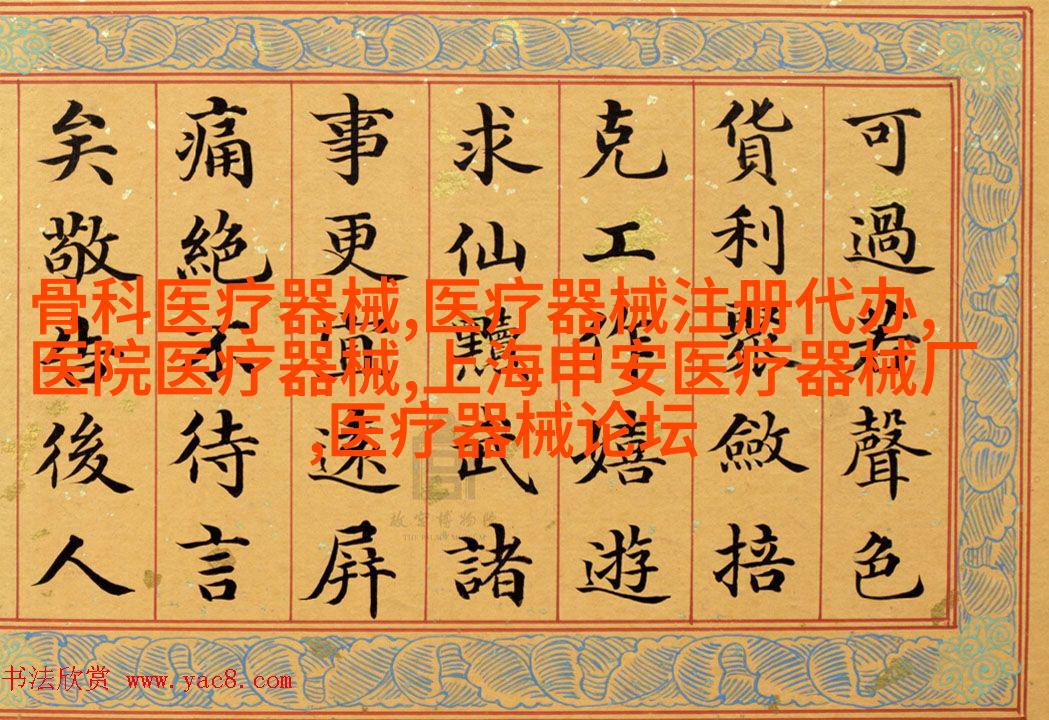 可過若聲色
貨利聚斂掊
克工作嬉遊
求仙黷武諸
事更遠屏
痛絕不待言
矣敬後人
骨科医疗器械,医疗器械注册代办,
医院医疗器械,上海申安医疗器械厂
,医疗器械论坛
故宫博物院
THE PALACE MUSEUM
书法欣赏 www.yac8.com